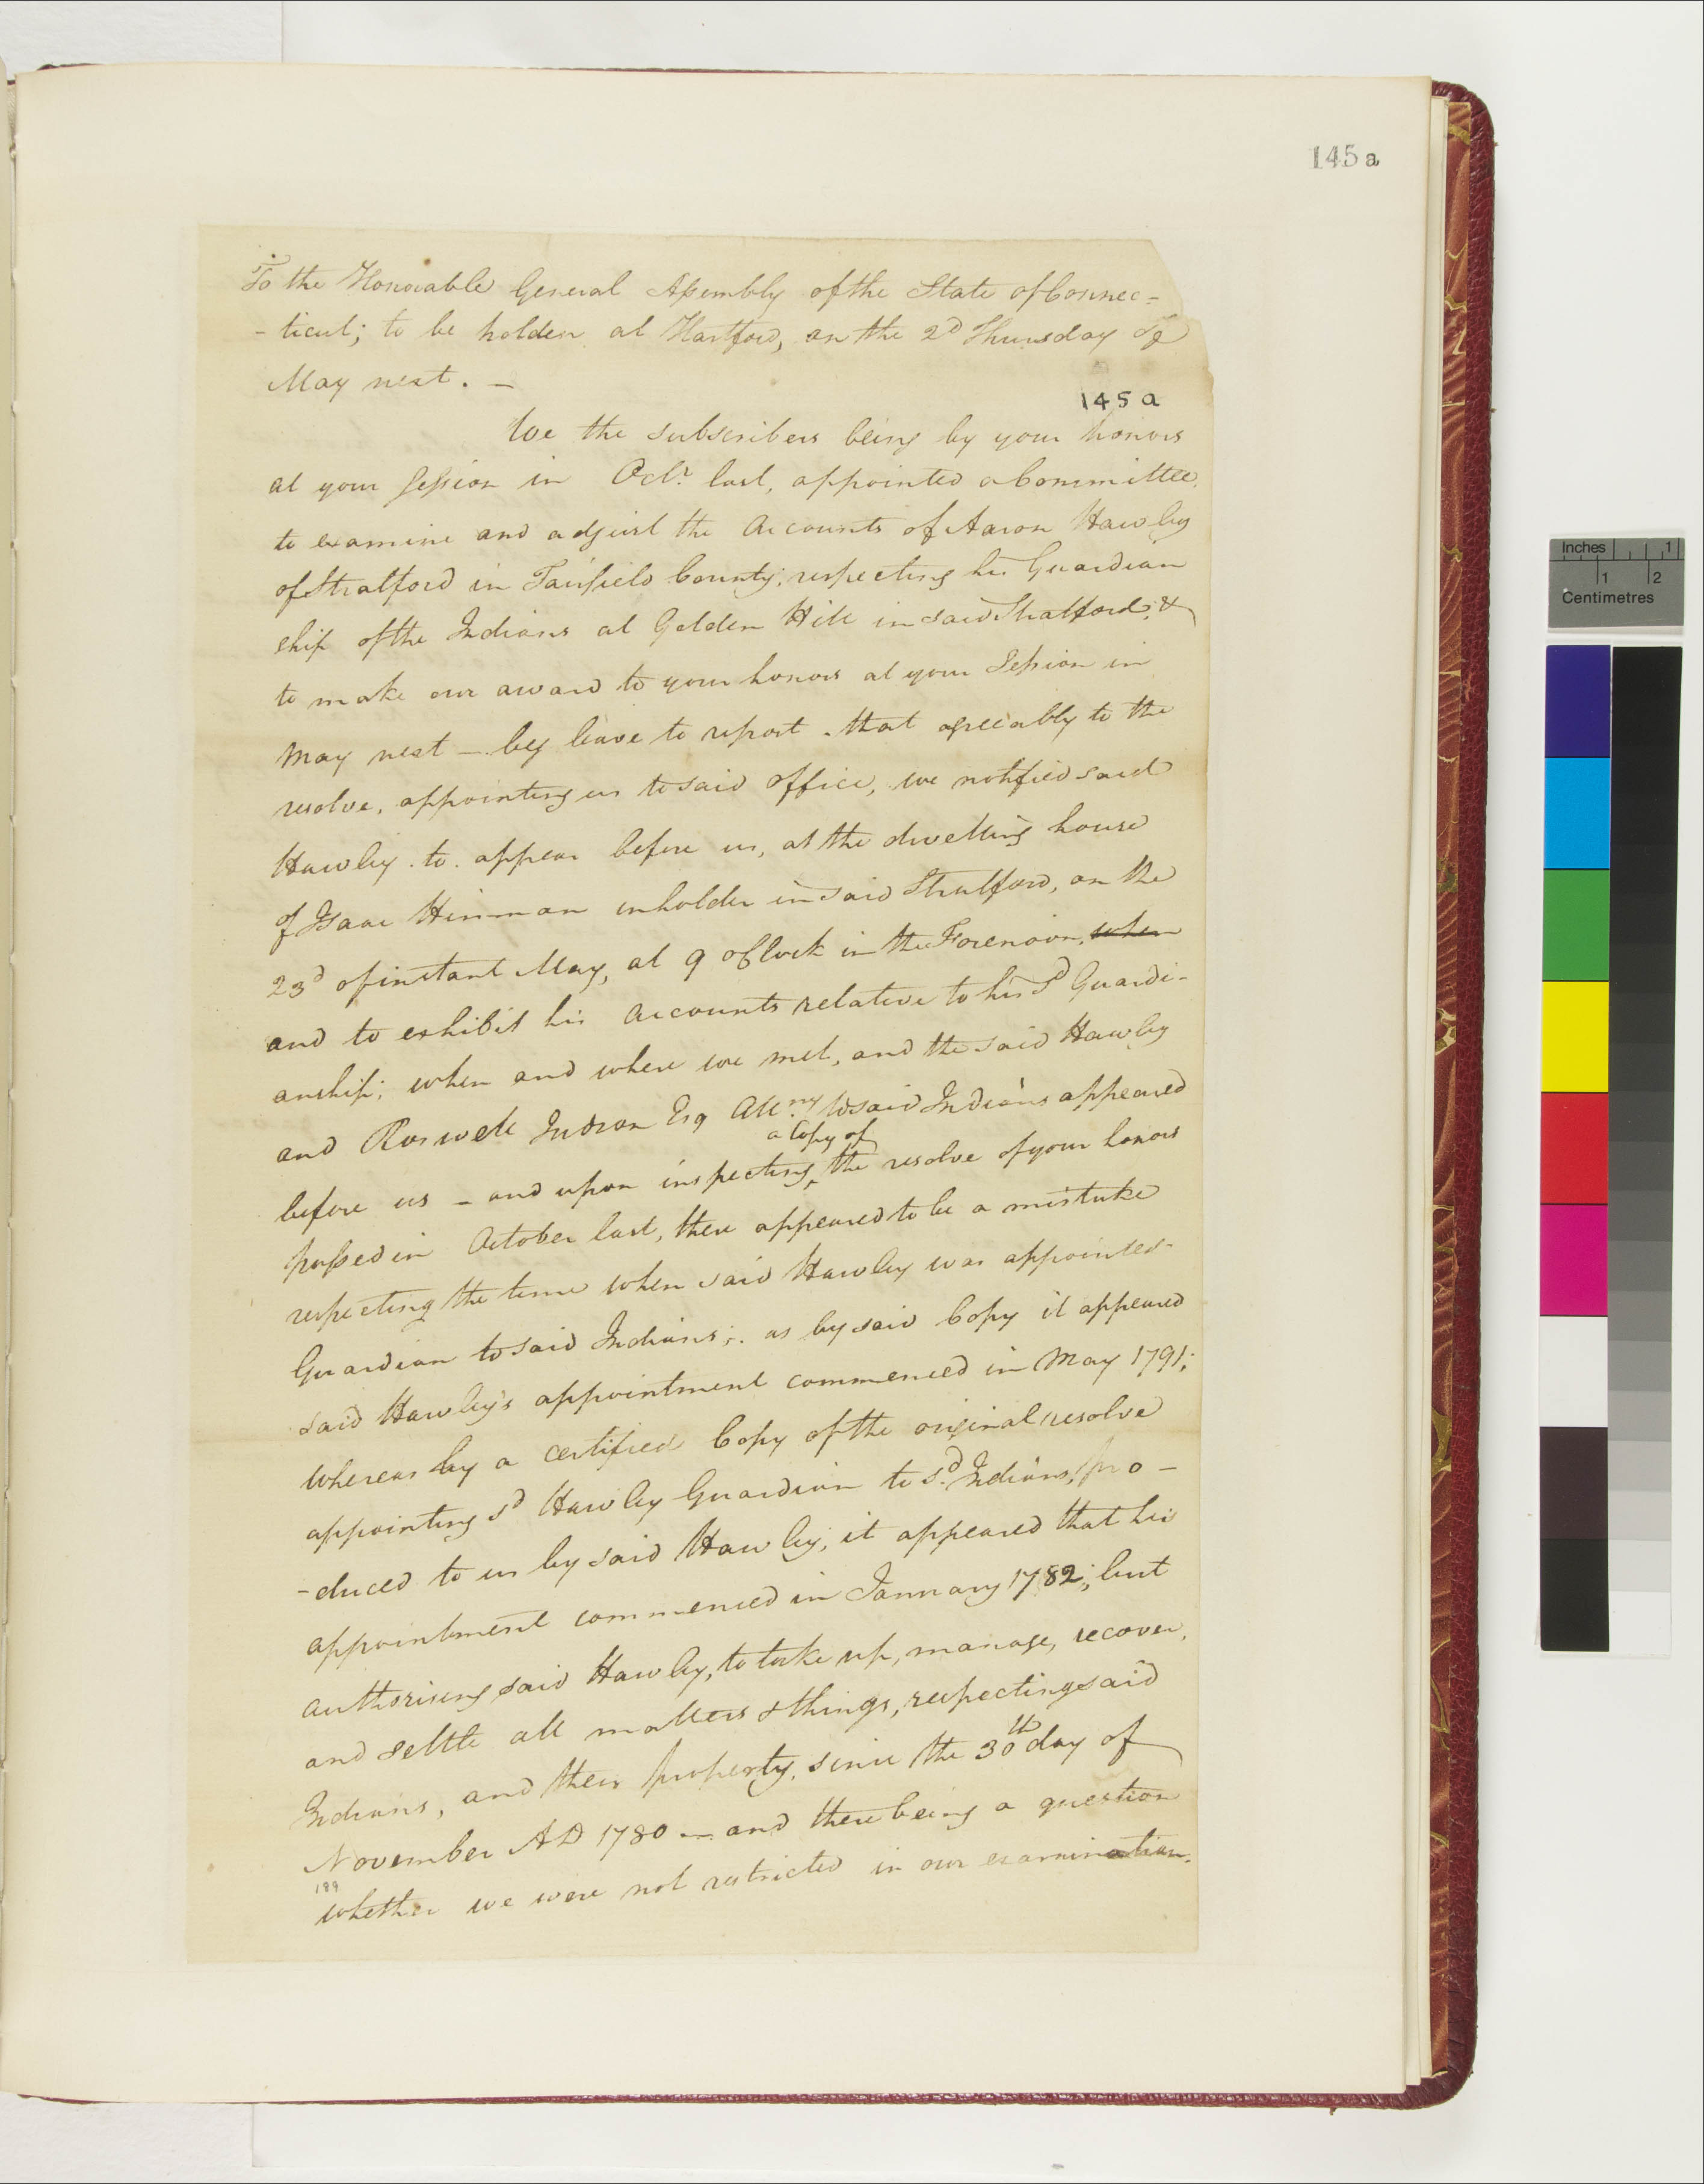 145 a
To the Honorable General Assembly of the State of Connec-
-ticut; to be holden at Hartford, on the 2d Thursday of
May next. —
145 a
We the subscribers being by your honors
at your Session in Octr. last, appointed a Committee,
to examine and adjust the Accounts of Aaron Hawley
of Stratford in Fairfield County, respecting his Guardian
ship of the Indians at Golden Hill in said Stratford; &
to make our award to your honors at your Session in
May next — beg leave to report - that agreeably to the
resolve, appointing us to said office, we notified said
Hawley to appear before us, at the dwelling house
of Isaac Hinman inholder in said Stratford, on the
23d of instant May, at 9 oClock in the Forenoon, when
and to exhibit his Accounts relative to his sd Guardi-
anship; when and where we met, and the said Hawley
and Roswell Judson Esq Att.ny to said Indians appeared
a Copy of
before us - and upon inspecting ‸ the resolve of your honors
passed in October last, there appeared to be a mistake
respecting the time when said Hawley was appointed
Guardian to said Indians; as by said Copy it appeared
said Hawley's appointment commenced in May 1791;
whereas by a certified Copy of the original resolve
appointing sd Hawley Guardian to sd. Indians, pro-
-duced to us by said Hawley; it appeared that his
appointment commenced in January 1782; but
authorising said Hawley, to take up, manage, recover,
and settle all matters & things, respecting said
Indians, and their property, since the 30th day of
November AD 1780 — and there being a question
189
whether we were not restricted in our examination.
Inches 1
1 2
Centimetres